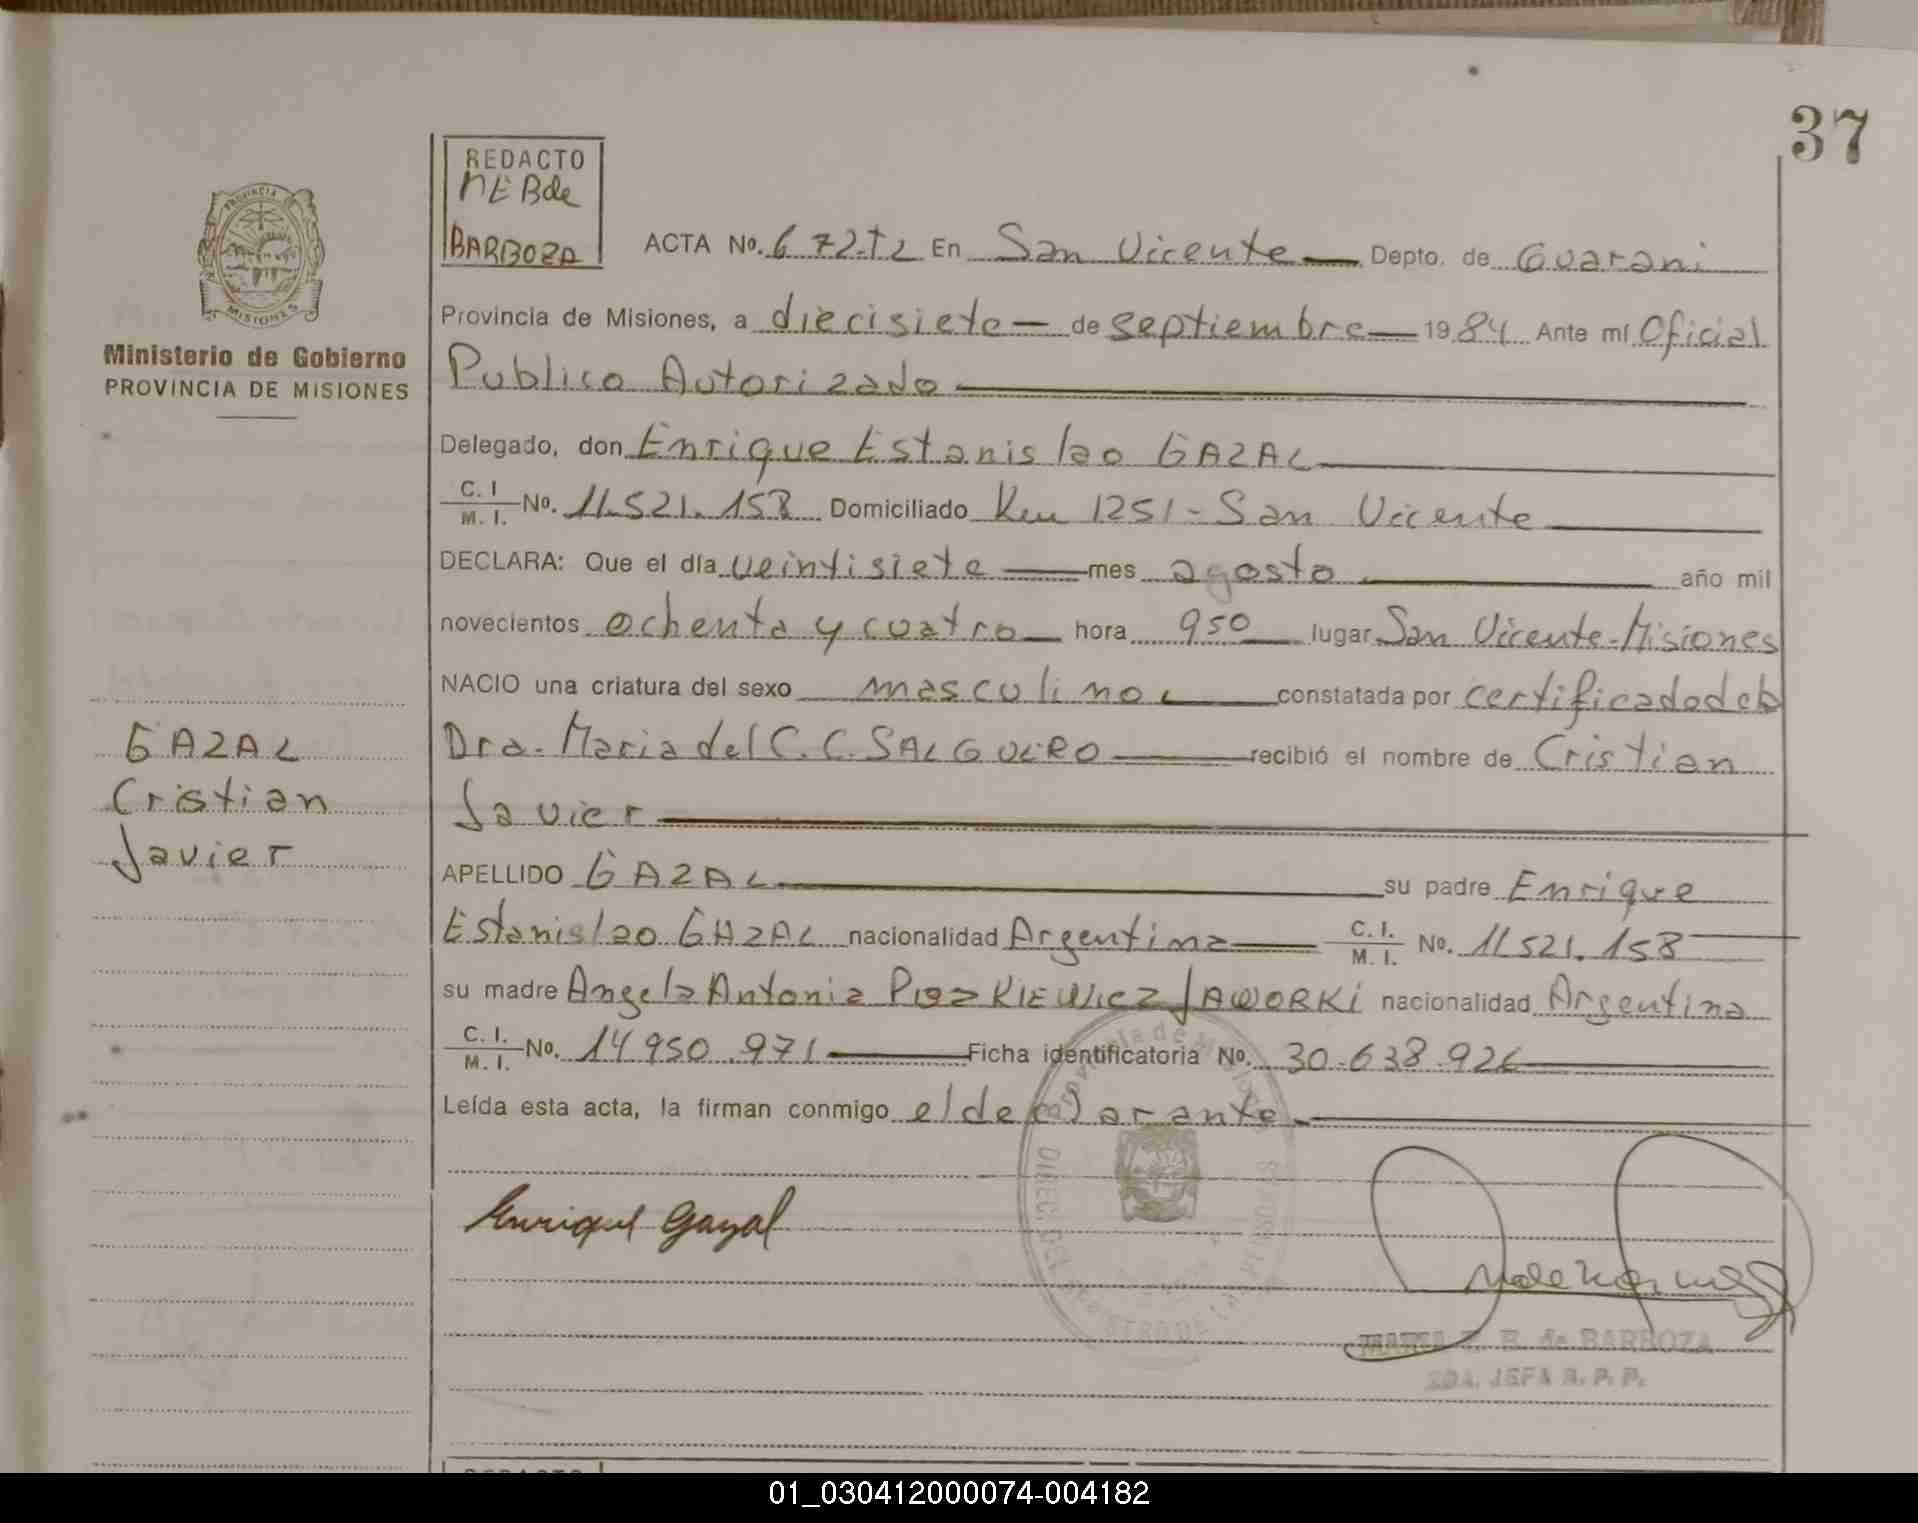 37
REDACTO
MEBde
BARBOZA
PROVINCIA
MISIONES
Ministerio de Gobierno
PROVINCIA DE MISIONES
ACTA No. 672-T2 En San Vicente Depto. de Guarani
Provincia de Misiones, a diecisiete de septiembre 1984 Ante mí Oficial
Publico Autorizado
Delegado, don Enrique Estanislao GAZAL
C. I. M. I. No. 11.521.158 Domiciliado Km 1251 - San Vicente
DECLARA: Que el día veintisiete mes agosto año mil
novecientos ochenta y cuatro hora 950 lugar San Vicente-Misiones
NACIO una criatura del sexo masculino constatada por certificado de la
Dra. Maria del C. C. SALGUERO recibió el nombre de Cristian
Javier
GAZAL
Cristian
Javier
APELLIDO GAZAL su padre Enrique
Estanislao GAZAL nacionalidad Argentina C. I. M. I. No. 11.521.158
su madre Angela Antonia nacionalidad Argentina
C. I. M. I. No. 14.950.971 Ficha identificatoria No. 30.638.926
Leída esta acta, la firman conmigo el declarante
Enrique Gazal
MARIA E. B. de BARBOZA
2DA. JEFA R. P. P.
REDACTO
01_030412000074-004182